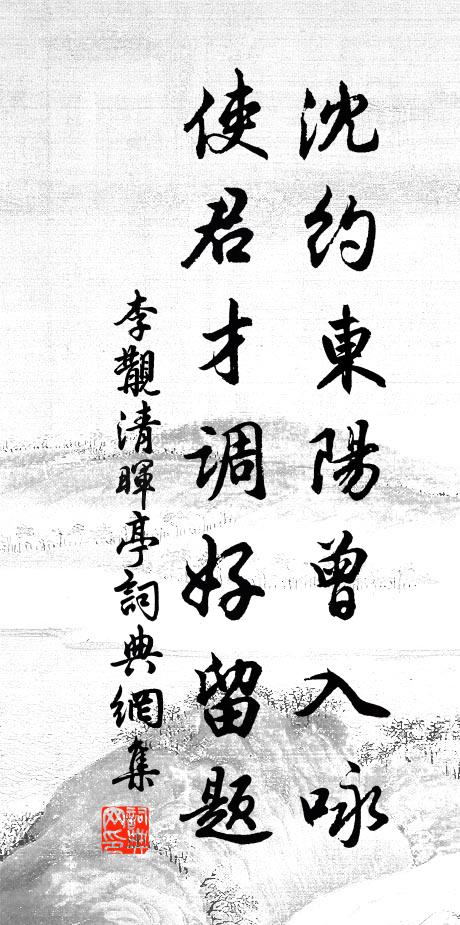 沈約東陽曾入咏
使君才調好留題
李覯清暉亭詞典網集